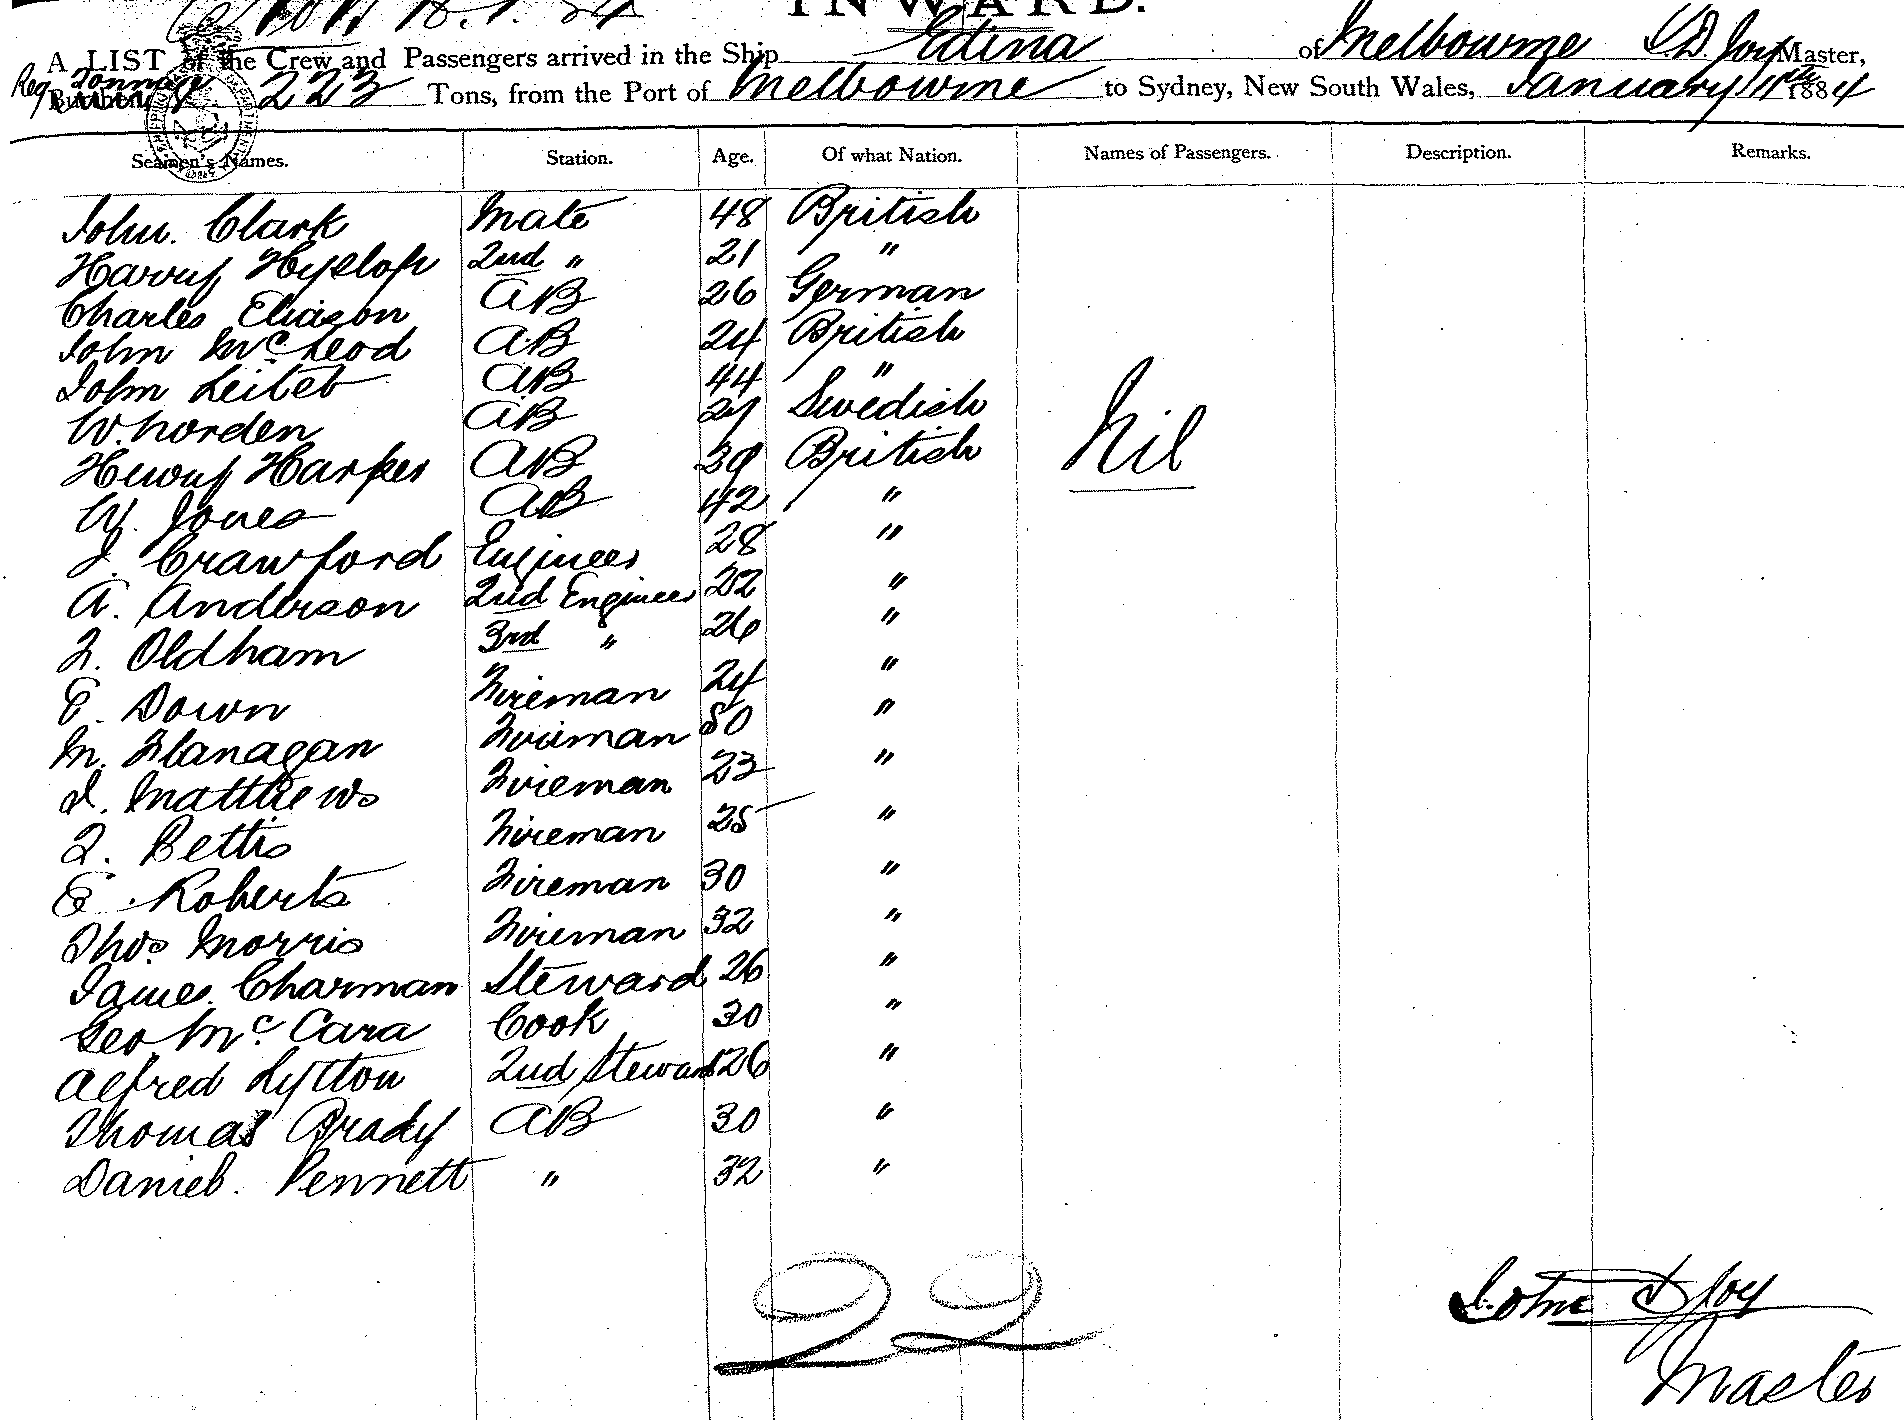 INWARD.
A LIST of the Crew and Passengers arrived in the Ship Edina of Melbourne J.D. Joy Master,
Reg Tonnage 223 Tons, from the Port of Melbourne to Sydney, New South Wales, January 11th 1884
Seamen's Names. Station. Age. Of what Nation. Names of Passengers. Description. Remarks.
John Clark Mate 48 British
Harry Hyslop 2nd " 21 "
Charles Eliason AB 26 German
John McLeod AB 24 British
John AB 44 "
W. Norden AB Swedish
Henry Harper AB 39 British
Nil
W. Jones AB 42 "
J. Crawford Engineer 28 "
A. Anderson 2nd Engineer 22 "
F. Oldham 3rd " 26 "
E. Down Fireman 24 "
M. Flanagan Fireman 50 "
J. Matthews Fireman 23 "
Bettis Fireman 25 "
E. Roberts Fireman 30 "
Thos. Morris Fireman 32 "
James Charman Steward 26 "
Geo McCara Cook 30 "
Alfred Lytton 2nd Steward 26 "
Thomas Brady AB 30 "
Daniel Pennett " 32 "
22
John D Joy
Master